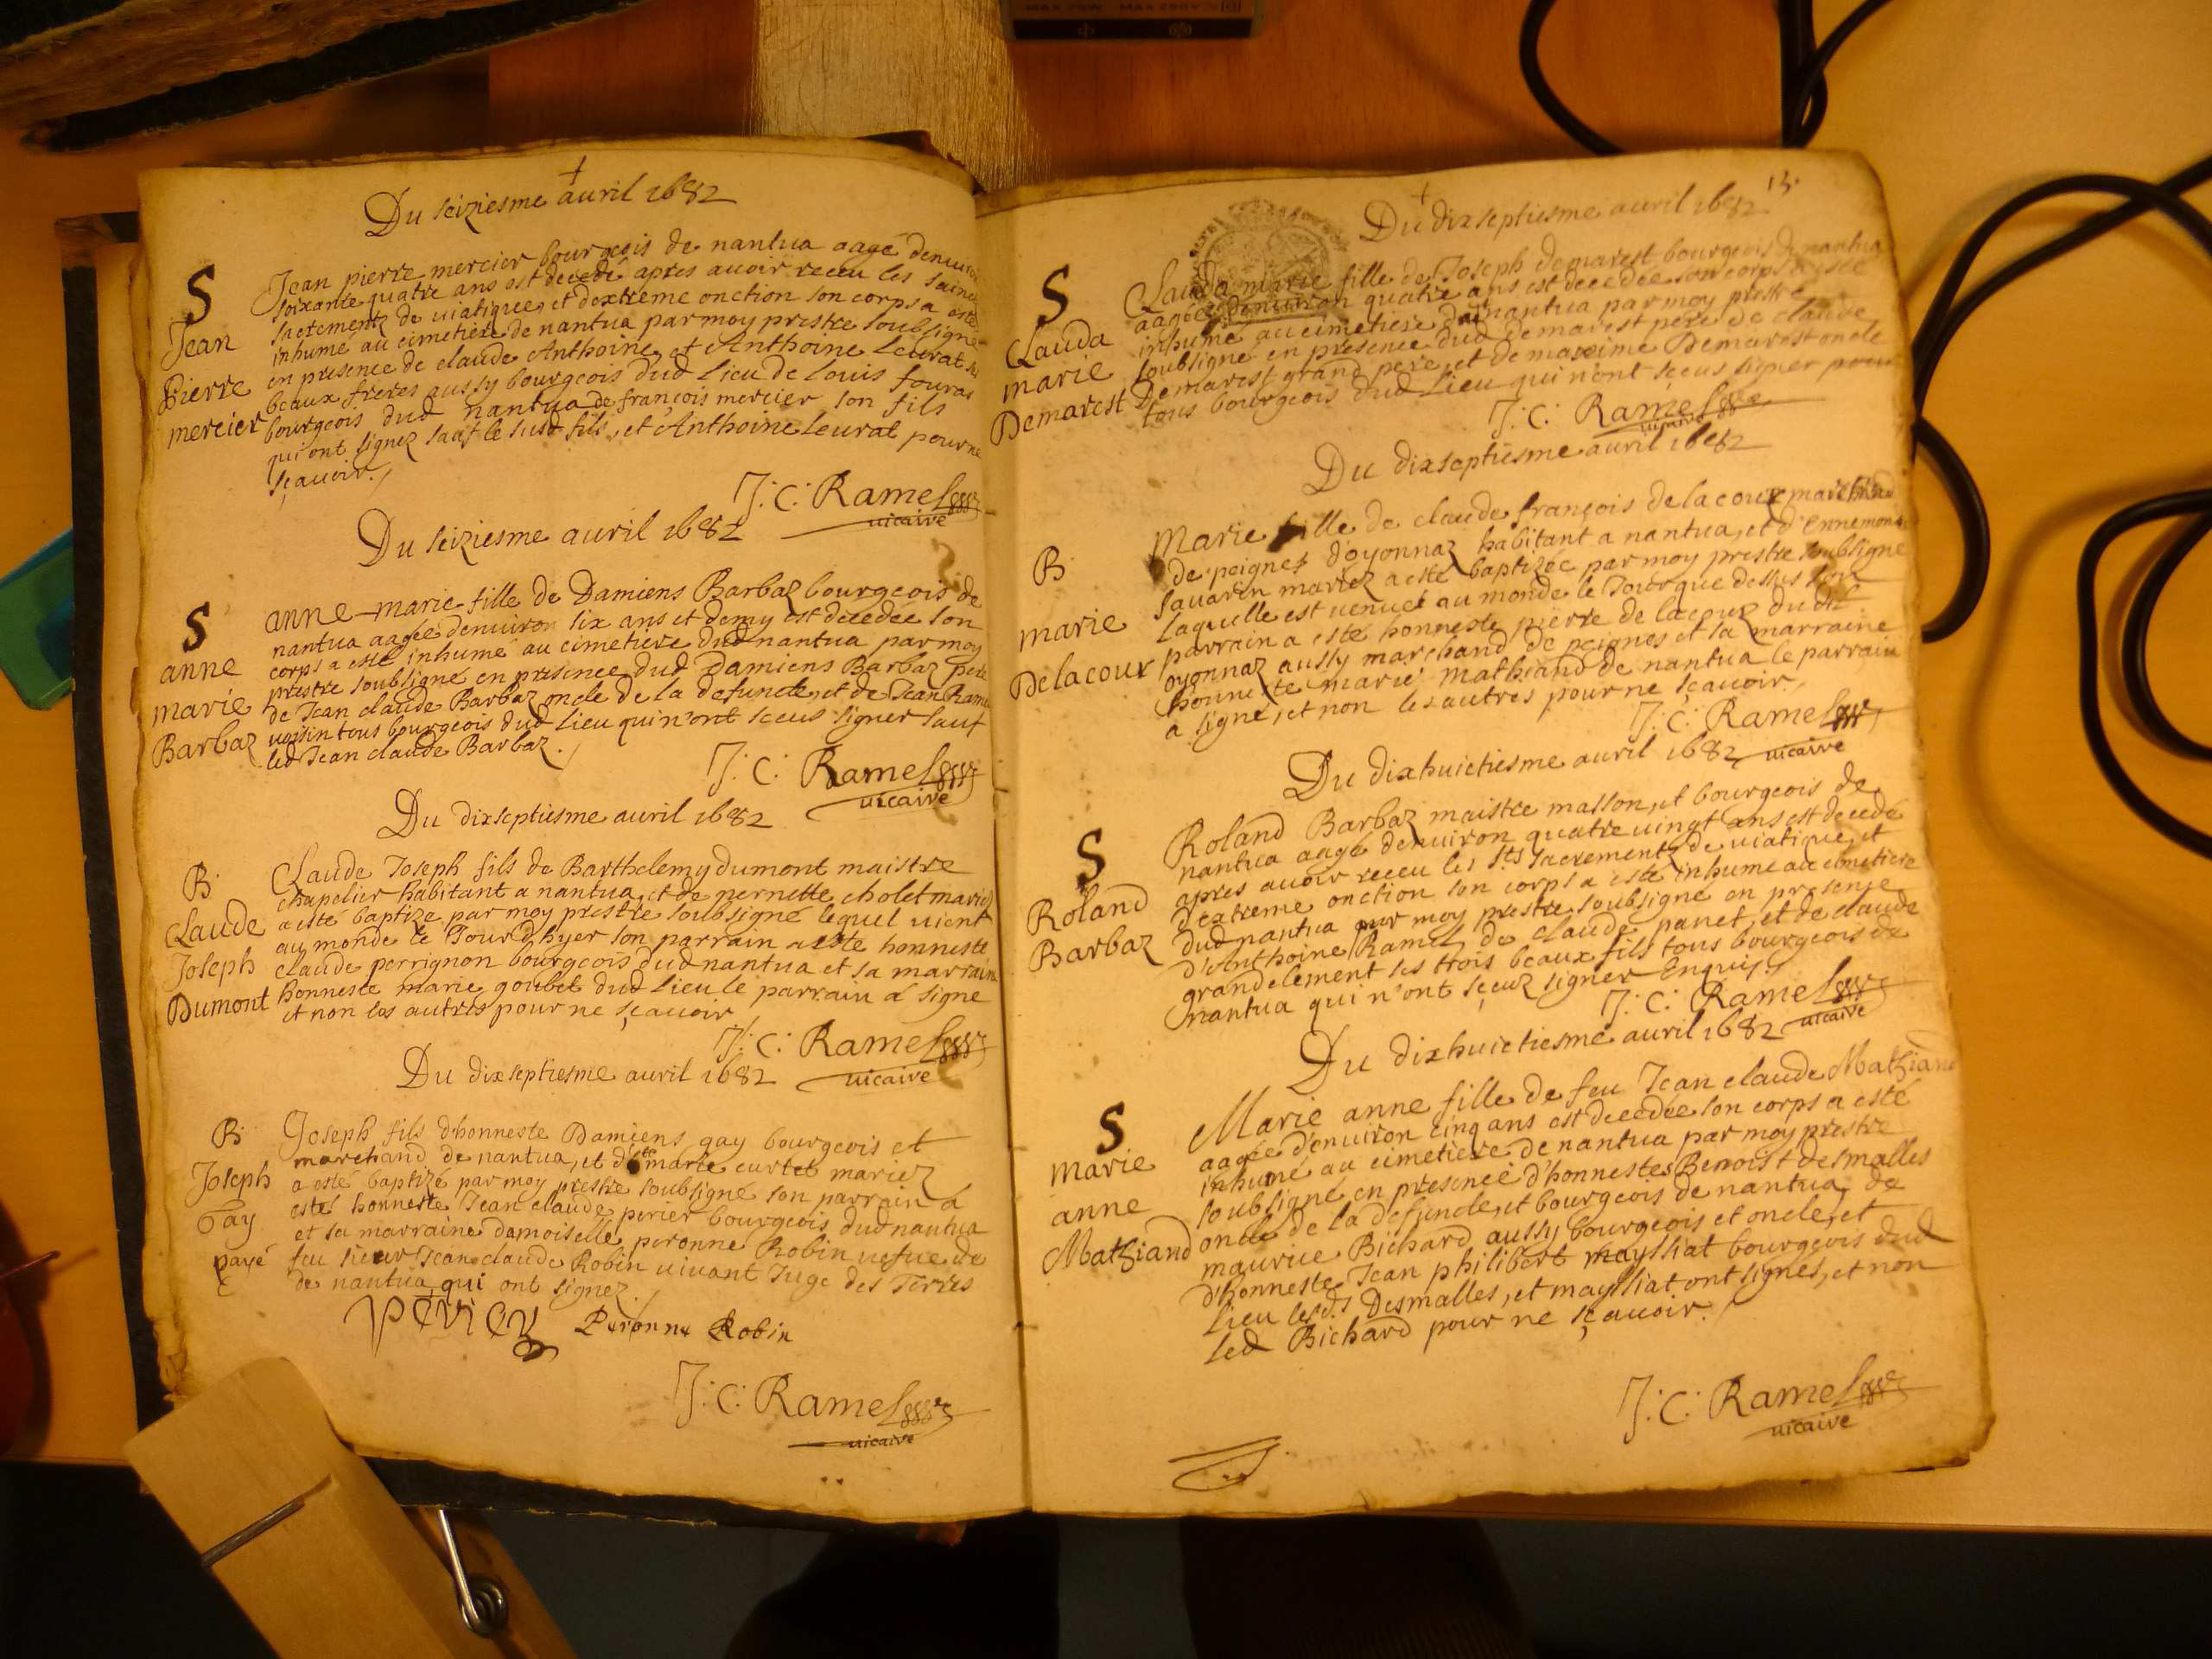 Du seiziesme auril 1682
S
Jean
Pierre
mercier
Jean pierre mercier bourgeois de nantua aagé denuiron
soixante quatre ans est decedé apres auoir receu les saincts
sacrements de uiatique, et dextreme onction son corps a esté
inhumé au cimetiere de nantua par moy prestre soubsigné
en presence de claude Anthoine, et Anthoine Leurat ses
beaux freres aussy bourgeois dud lieu de Louis fouras
bourgeois dud nantua de françois mercier son fils
qui ont signez sauf le susd fils, et Anthoine Leurat pour ne
sçauoir.
J: C: Ramel
uicaire
Du seiziesme auril 1682
S
anne
marie
Barbaz
anne-marie fille de Damiens Barbaz bourgeois de
nantua aagée denuiron six ans et demy est decedée son
corps a esté inhumé au cimetiere dud nantua par moy
prestre soubsigné en presence dud Damiens Barbaz pere
de Jean claude Barbaz oncle de la defuncte, et de Jean Ramel
uoisin tous bourgeois dud lieu qui n'ont sceus signer sauf
led Jean claude Barbaz.
J: C: Ramel
uicaire
Du dixseptiesme auril 1682
B
Claude
Joseph
Dumont
Claude Joseph fils de Barthelemy dumont maistre
chapelier habitant a nantua, et de pernette cholet mariez
a esté baptizé par moy prestre soubsigné lequel uient
au monde le Jour d'hyer son parrain a esté honneste
claude perrignon bourgeois dud nantua et sa marraine
honneste marie goubet dud lieu le parrain a signé
et non les autres pour ne sçauoir
J: C: Ramel
uicaire
Du dixseptiesme auril 1682
B
Joseph
Gay
payé
Joseph fils d'honneste Damiens gay bourgeois et
marchand de nantua, et d'elle marie curtet mariez
a esté baptizé par moy prestre soubsigné son parrain a
esté honneste Jean claude perier bourgeois dud nantua
et sa marraine damoiselle peronne Robin uefue de
feu sieur Jean claude Robin uiuant Juge des Terres
de nantua qui ont signez.
perier Peronne Robin
J: C: Ramel
uicaire
13.
Du dixseptiesme auril 1682
S
Clauda
marie
Demarest
Clauda marie fille de Joseph demarest bourgeois de nantua
aagée denuiron quatre ans est decedée son corps a esté
inhumé au cimetiere de nantua par moy prestre
soubsigné en presence dud demarest pere de claude
Demarest grand pere, et de maxime Demarest oncle
tous bourgeois dud Lieu qui n'ont sceus signer pour
J: C: Ramel
uicaire
Du dixseptiesme auril 1682
B
marie
Delacour
Marie fille de claude françois delacour marchand
de peignes d'oyonnaz habitant a nantua, et d'Ennemonde
sauarin mariez a esté baptizée par moy prestre soubsigné
laquelle est uenue au monde le Jour que dessus son
parrain a esté honneste pierre de lacour dudit
oyonnaz aussy marchand de peignes et sa marraine
honneste marie mathiand de nantua le parrain
a signé, et non les autres pour ne sçauoir.
J: C: Ramel
uicaire
Du dixhuictiesme auril 1682
S
Roland
Barbaz
Roland Barbaz maistre masson, et bourgeois de
nantua aagé denuiron quatre uingt ans est decedé
apres auoir receu les sts sacrements de uiatique, et
d'extreme onction son corps a esté inhumé au cimetiere
dud nantua par moy prestre soubsigné en presence
d'Anthoine Ramel, de claude panet, et de claude
grandclement ses trois beaux fils tous bourgeois de
nantua qui n'ont sçeuz signer Enquis.
J: C: Ramel
uicaire
Du dixhuictiesme auril 1682
S
marie
anne
Mathiand
Marie anne fille de feu Jean claude Mathiand
aagée d'enuiron cinq ans est decedée son corps a esté
inhumé au cimetiere de nantua par moy prestre
soubsigné en presence d'honnestes Benoist desmalles
oncle de la defuncte, et bourgeois de nantua, de
maurice Bichard aussy bourgeois et oncle, et
d'honneste Jean philibert maysliat bourgeois dud
lieu lesds Desmalles, et maysliat ont signés, et non
led Bichard pour ne sçauoir.
J: C: Ramel
uicaire